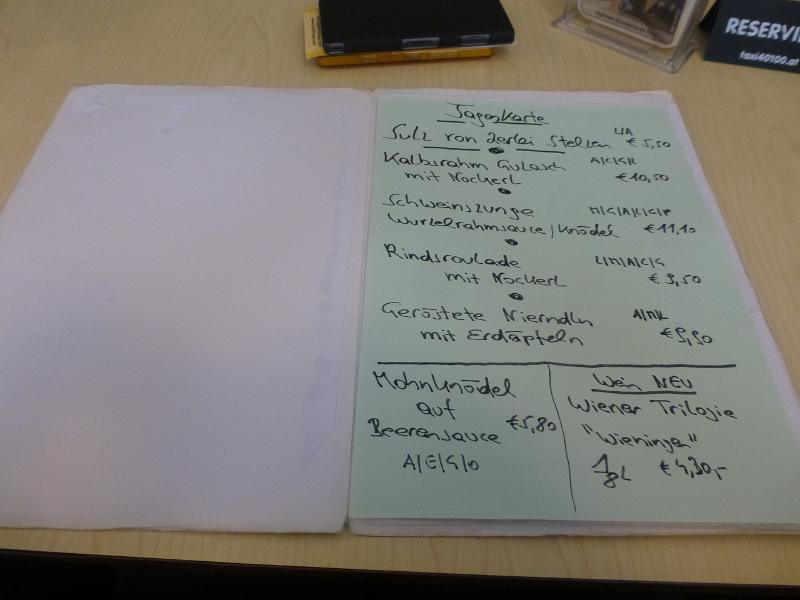 RESERVI
taxi40100.at
Tageskarte
Sulz von 2erlei Stelzen L/A € 5,50
Kalbsrahm Gulasch A/C/G/L
mit Nockerl € 10,50
Schweinszunge M/G/A/L/C/P
Wurzelrahmsauce/Knödel € 11,10
Rindsroulade L/M/A/C/G
mit Nockerl € 9,50
Geröstete Nierndln A/M/L
mit Erdäpfeln € 9,90
Mohnknödel
auf
Beerensauce € 5,80
A/E/G/O
Wein NEU
Wiener Trilogie
"Wieninger"
1/8 L € 4,30,-